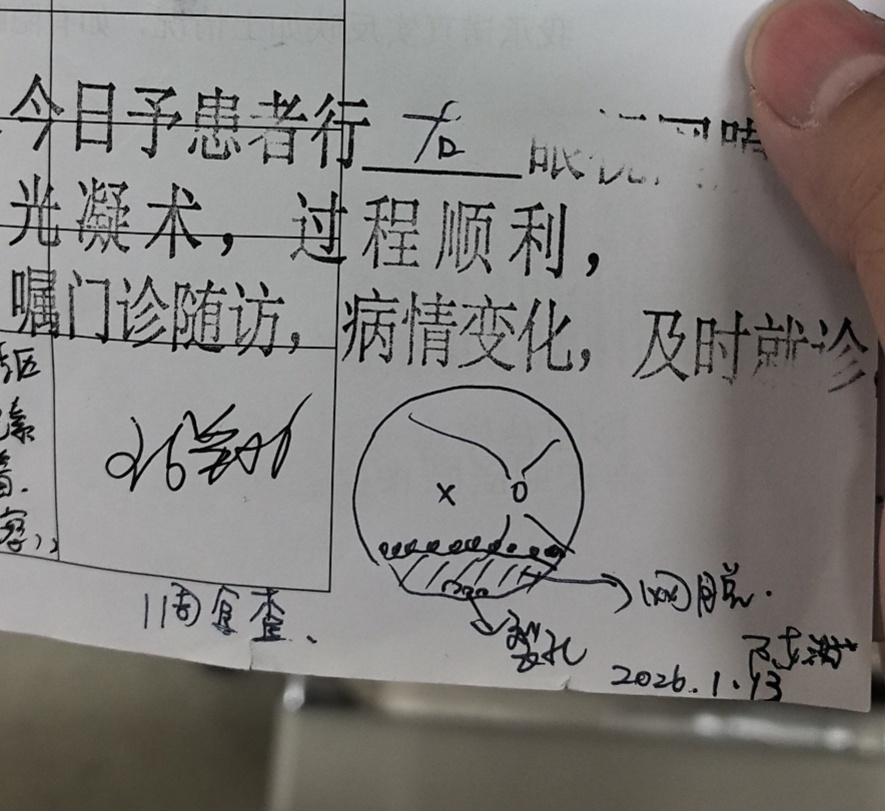 今日予患者行 右 眼视网
光凝术，过程顺利，
嘱门诊随访，病情变化，及时就诊
区
素
察
x
网脱.
1周复查、
裂孔
2026.1.13